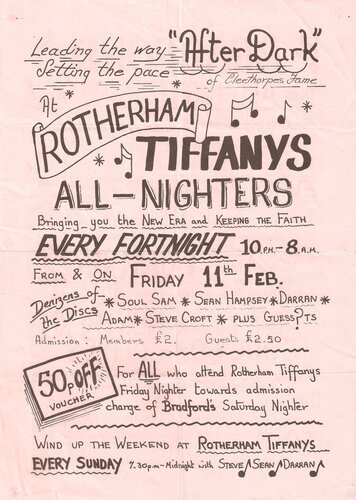 Leading the way "After Dark"
Setting the pace of Cleethorpes Fame
At
ROTHERHAM
TIFFANYS
ALL-NIGHTERS
Bringing you the NEW ERA and KEEPING THE FAITH
EVERY FORTNIGHT 10 P.M. - 8 A.M.
FROM & ON FRIDAY 11th FEB.
Denizens of the Discs * SOUL SAM * SEAN HAMPSEY * DARRAN *
ADAM * STEVE CROFT * PLUS GUESTS
Admission: Members £2. Guests £2.50
50p OFF
VOUCHER
For ALL who attend Rotherham Tiffanys
Friday Nighter towards admission
charge of Bradford's Saturday Nighter
WIND UP THE WEEKEND AT ROTHERHAM TIFFANYS
EVERY SUNDAY 7.30p.m-Midnight with STEVE SEAN DARRAN